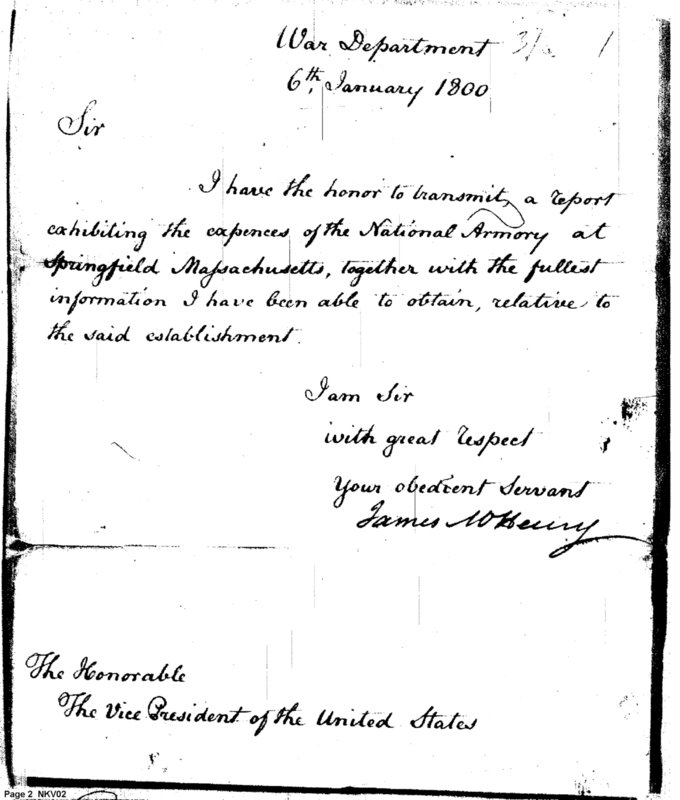 War Department
6th, January 1800
Sir
I have the honor to transmit, a report
exhibiting the expences of the National Armory at
Springfield Massachusetts, together with the fullest
information I have been able to obtain, relative to
the said establishment.
I am Sir
with great respect
Your obedient Servant
James McHenry
The Honorable
The Vice President of the United States
Page 2 NKV02